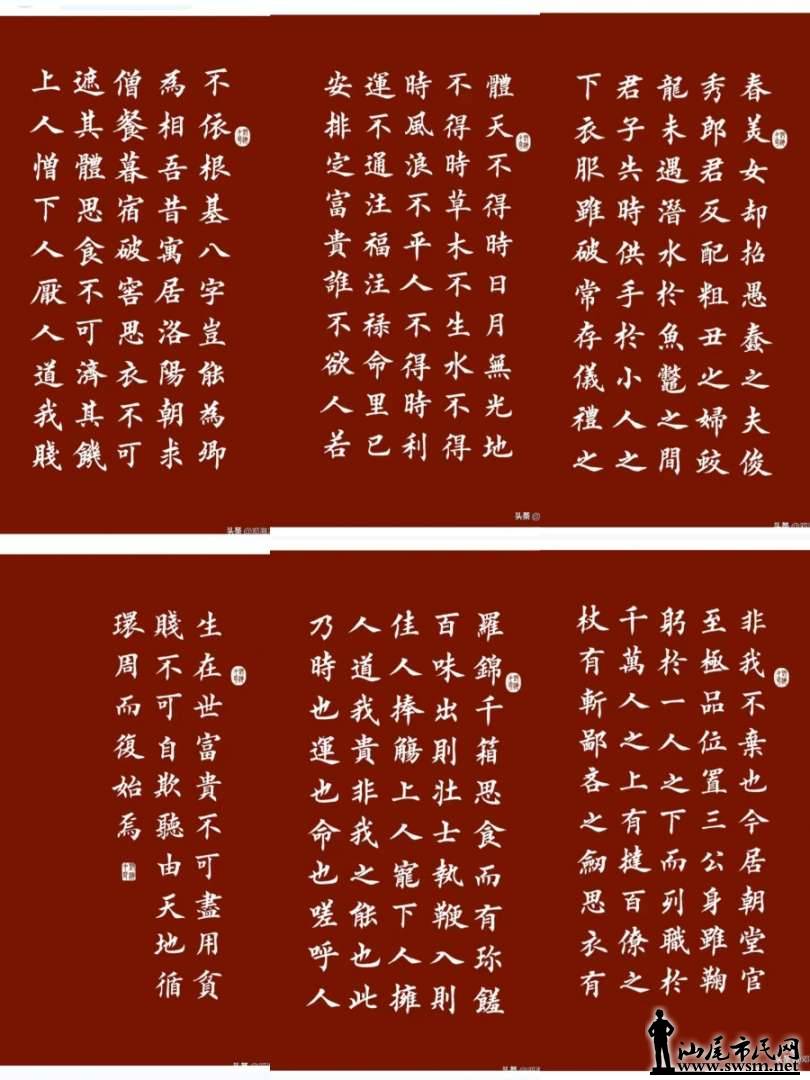 春美女却招愚蠢之夫俊
秀郎君反配粗丑之婦蛟
龍未遇潛水於魚鱉之間
君子失時供手於小人之
下衣服雖破常存儀禮之
體天不得時日月無光地
不得時草木不生水不得
時風浪不平人不得時利
運不通注福注禄命里已
安排定富貴誰不欲人若
不依根基八字豈能為卿
為相吾昔寓居洛陽朝求
僧餐暮宿破窖思衣不可
遮其體思食不可濟其饑
上人憎下人厭人道我賤
头条 @
头条 @
头条 @
非我不棄也今居朝堂官
至極品位置三公身雖鞠
躬於一人之下而列職於
千萬人之上有撻百僚之
杖有斬鄙吝之劍思衣有
羅錦千箱思食而有珍饈
百味出則壯士執鞭入則
佳人捧觴上人寵下人擁
人道我貴非我之能也此
乃時也運也命也嗟呼人
生在世富貴不可盡用貧
賤不可自欺聽由天地循
環周而復始焉
头条 @
头条 @
汕尾市民网
www.swsm.net